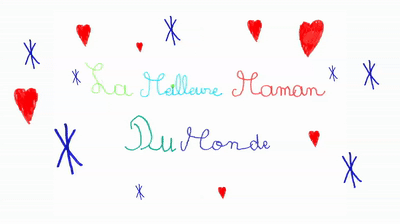 La Meilleure Maman
Du Monde